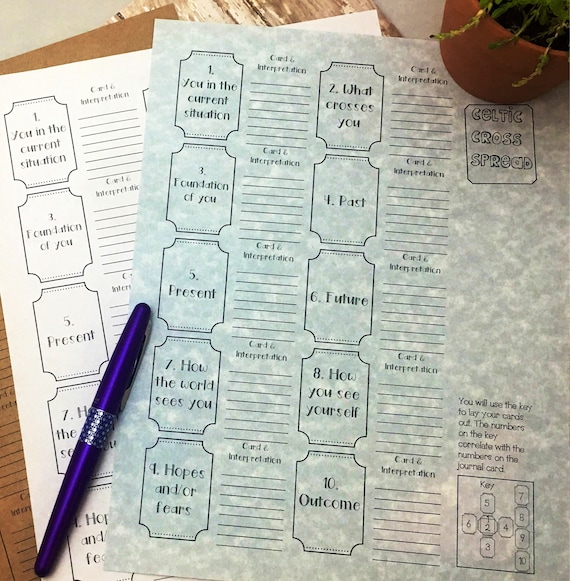 Card &
Interpretation
1.
You in the
current
situation
Card &
Interpretation
2. What
crosses
you
CELTIC
CROSS
SPREAD
Card &
Interpretation
3.
Foundation
of you
Card &
Interpretation
4. Past
Card &
Interpretation
5.
Present
Card &
Interpretation
6. Future
Card &
Interpretation
7. How
the world
sees you
Card &
Interpretation
8. How
you see
yourself
Card &
Interpretation
9. Hopes
and/or
fears
Card &
Interpretation
10.
Outcome
You will use the key
to lay your cards
out. The numbers
on the key
correlate with the
numbers on the
journal card
Key
5
7
8
6 1 4
2
9
3
10
Card &
Interpretation
1.
You in the
current
situation
Card &
Interpretation
3.
Foundation
of you
Card &
Interpretation
5.
Present